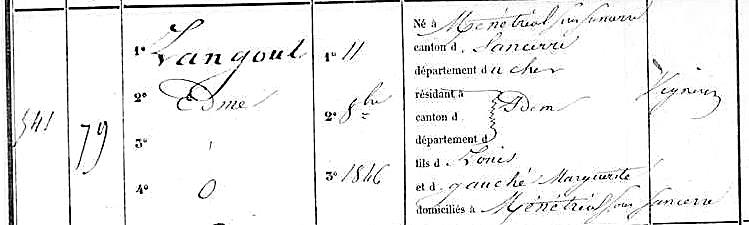 541
79
1° Langout
2° Edmé
3° "
4° 0
1° 11
2° 8bre
3° 1846
Né à Ménétréol sous Sancerre
canton d. Sancerre
département d u cher
résidant à
canton d.
département d
Idem
fils d Louis
et d. gauché Marguerite
domiciliés à Ménétréol sous Sancerre
Vigneron